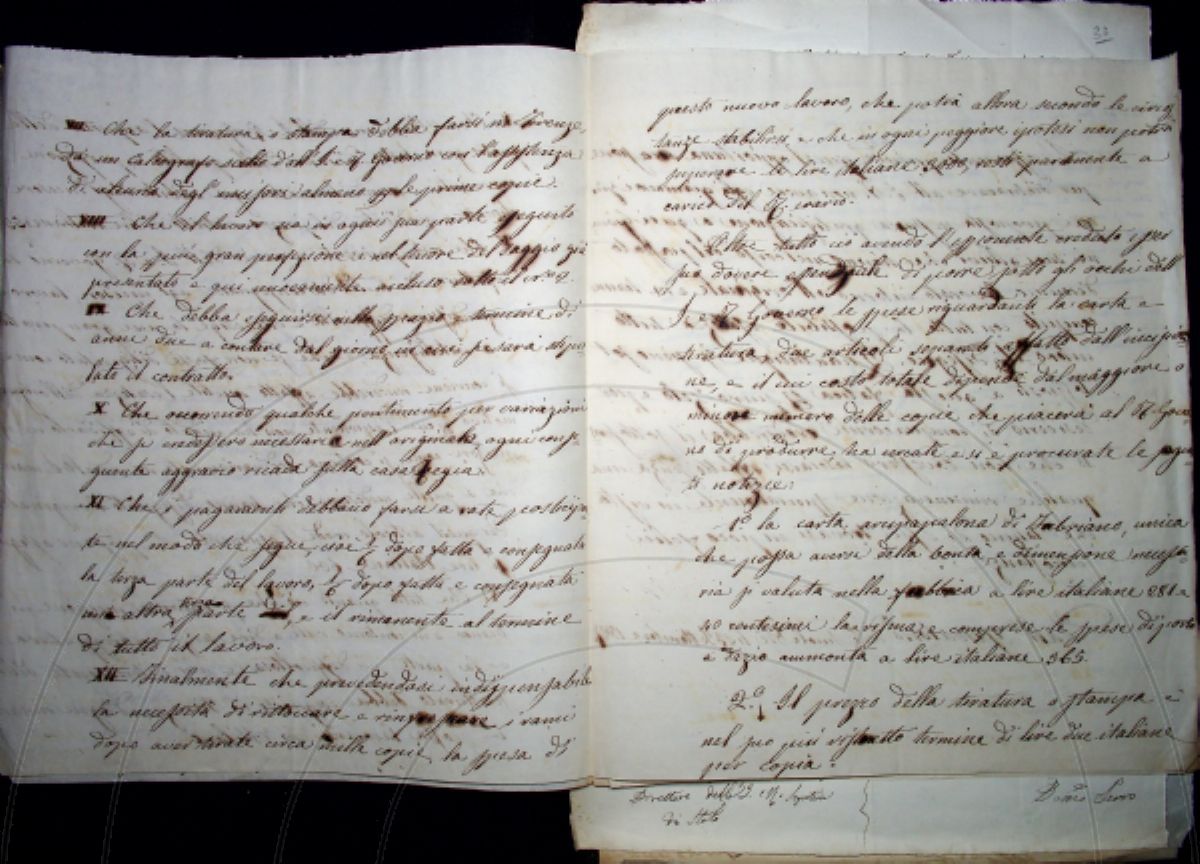 VII Che la tiratura o stampa debba farsi in Firenze,
da un calcografo scelto dall'I. e R. Governo con l'assistenza
di alcuno degl'incisori almeno per le prime copie.
VIII Che il lavoro sia in ogni sua parte eseguito
con la più gran perfezione e nel tenore del Saggio già
presentato e qui unitamente incluso sotto il n.º 2.
IX Che debba eseguirsi nello spazio e termine di
anni due a contare dal giorno in cui sarà stipu
lato il contratto.
X Che occorrendo qualche pentimento per variazioni
che si rendessero necessarie nell'originale, ogni conse
guente aggravio ricada sulla cassa Regia.
XI Che i pagamenti debbano farsi a rate
te nel modo che segue, cioè 1/3 dopo fatta e consegnata
la terza parte del lavoro, 1/3 dopo fatta e consegnata
una altra terza parte, e il rimanente al termine
di tutto il lavoro.
XII Finalmente che prevedendosi indispensabile
la necessità di ritoccare e rinfrescare i rami
dopo aver tirate circa mille copie, la spesa di
33
questo nuovo lavoro, che potrà allora secondo le circos
tanze stabilirsi e che in ogni peggiore ipotesi non potrà
superare le lire italiane resti parimente a
carico del R. erario.
Oltre tutto ciò avendo l'esponente creduto suo
dovere di porre sotto gli occhi dell'
I. e R. Governo le spese riguardanti la carta e
tiratura, due articoli dall'incisio
ne, e il cui costo totale dipende dal maggiore o
minore numero delle copie che piacerà al R. Gover
no di produrre, ha cercate e si è procurate le seguen
ti notizie:
1.º la carta arcipapalona di Fabriano, unica
che possa aversi della bontà e dimensione necessa
ria si valuta nella fabbrica a lire italiane 281 e
40 centesimi la risma, e comprese le spese di porto
e dazio ammonta a lire italiane 365
2.º Il prezzo della tiratura o stampa è
nel suo più ristretto termine di lire due italiane
per copia.
Direttore dell'I. R.
di Stato